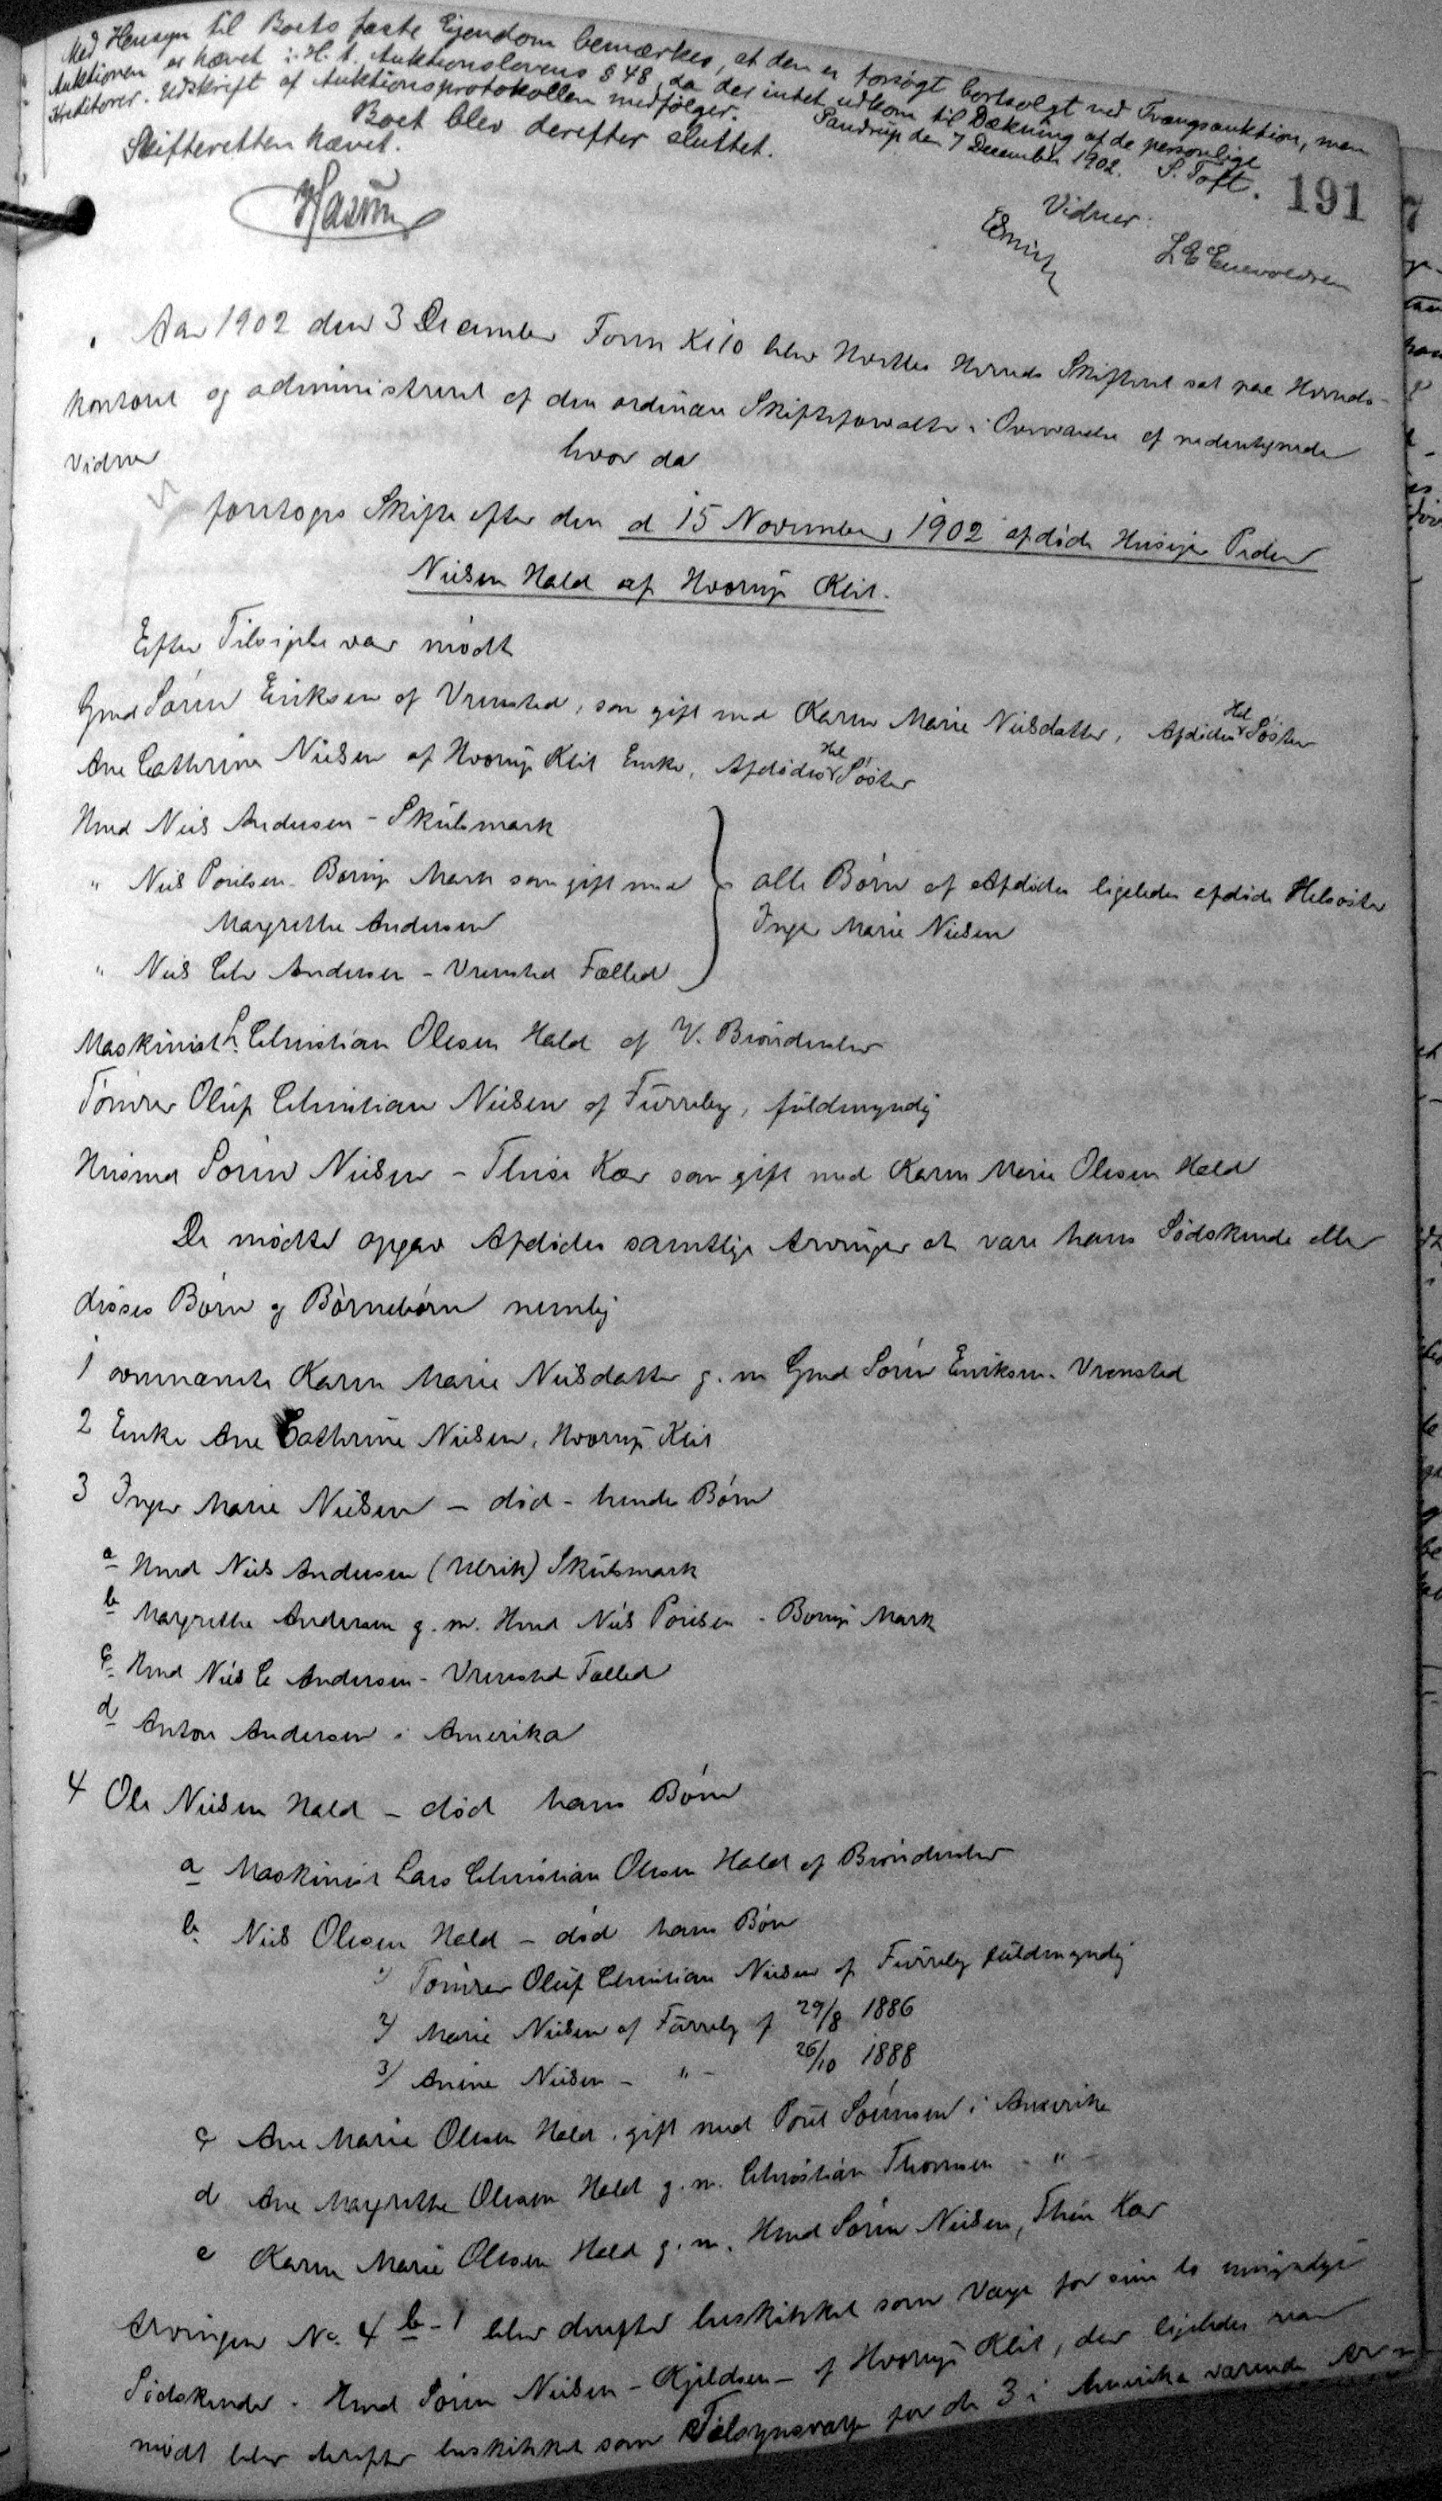 Med Hensyn til Boets faste Ejendom bemærkes, at den er forsøgt bortsolgt ved Tvangsauktion, men
Auktionen er hævet i H. t. Auktionslovens § 48, da der intet udkom til Dækning af de personlige
Kreditorer. Udskrift af Auktionsprotokollen medfølger. Sandrup den 7 December 1902. S. Toft.
Boet blev derefter sluttet.
Skifteretten hævet.
191
Vidner:
ESmith
L E Enevoldsen
Aar 1902 den 3 December Form Kl 10 blev Hvetbo Herreds Skifteret sat paa Herreds-
kontoret og administreret af den ordinære Skifteforvalter i Overværelse af nedentegnede
Vidner
hvor da
foretoges Skifte efter den d 15 November 1902 afdøde Husejer Peder
Nielsen Hald af Hvorup Klit.
Efter Tilsigelse var mødt
Gmd Søren Eriksen af Vrensted, som gift med Karen Marie Nielsdatter, Afdødes Hel Søster
Ane Cathrine Nielsen af Hvorup Klit Enke, Afdødes Hel Søster
Hmd Niels Andersen - Skulsmark
" Niels Poulsen - Borup Mark som gift med
Margrethe Andersen
" Niels Chr Andersen - Vrensted Fælled
alle Børn af Afdødes ligeledes afdøde Helsøster
Inger Marie Nielsen
Maskinist L. Christian Olesen Hald af V. Brønderslev
Tømrer Oluf Christian Nielsen af Furreby, fuldmyndig
Husmd Søren Nielsen - Thise Kær som gift med Karen Marie Olesen Hald
De mødte opgav Afdødes samtlige Arvinger at være hans Sødskende eller
disses Børn og Børnebørn nemlig
1 ovennævnte Karen Marie Nielsdatter g. m Gmd Søren Eriksen - Vrensted
2 Enke Ane Cathrine Nielsen, Hvorup Klit
3 Inger Marie Nielsen - død - hendes Børn
a Hmd Niels Andersen (Ulrik) Skulsmark
b Margrethe Andersen g. m. Hmd Niels Poulsen - Borup Mark
c Hmd Niels C Andersen - Vrensted Fælled
d Anton Andersen i Amerika
4 Ole Nielsen Hald - død hans Børn
a Maskinist Lars Christian Olesen Hald af Brønderslev
b Niels Olesen Hald - død hans Børn
1) Tømrer Oluf Christian Nielsen af Furreby fuldmyndig
2) Marie Nielsen af Furreby f 29/8 1886
3) Anine Nielsen - " - 26/10 1888
c Ane Marie Olesen Hald, gift med Poul Sørensen i Amerika
d Ane Margrethe Olesen Hald g. m. Christian Thomsen - " -
e Karen Marie Olesen Hald g. m. Hmd Søren Nielsen, Thise Kær
Arvingen No. 4 b-1 blev derefter beskikket som Værge for sine to umyndige
Sødskende. Hmd Søren Nielsen - Kjeldsen - af Hvorup Klit, der ligeledes var
mødt blev derefter beskikket som Tilsynsværge for de 3 i Amerika værende Arv